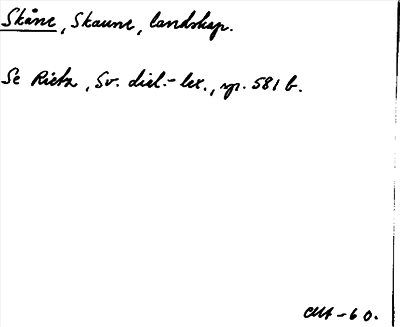 Skåne, Skaune, landskap.
Se Rietz, Sv. dial.-lex., sp. 581 b.
-60.